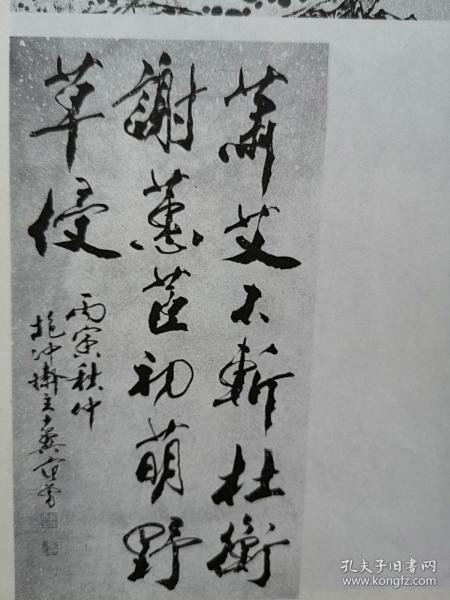 蕭艾不斬杜衡
謝蕙茝初萌野
草侵
丙寅秋仲
抱冲齋主十翼范曾
孔夫子旧书网
www.kongfz.com